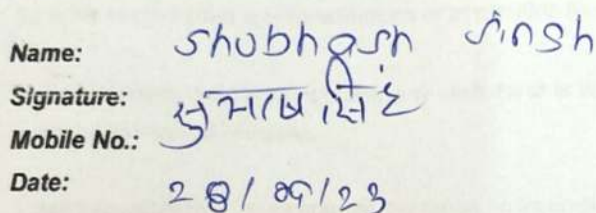 Name: Shubhash Singh
Signature: सुभाष सिंह
Mobile No.:
Date: 28/09/23